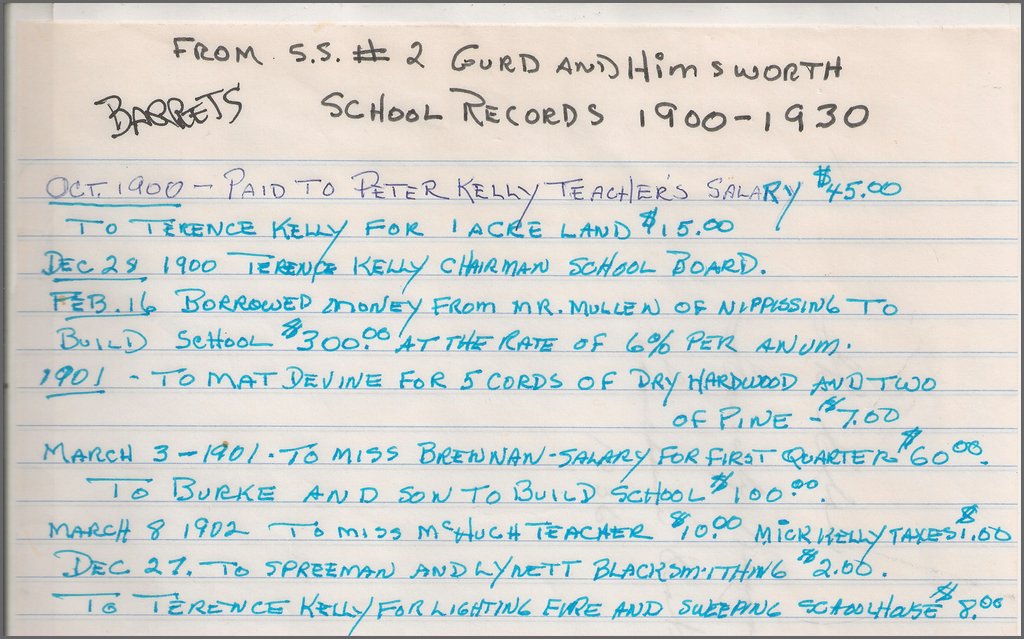 FROM S.S. # 2 GURD AND HIMSWORTH
BARRETS SCHOOL RECORDS 1900-1930
OCT. 1900 - PAID TO PETER KELLY TEACHER'S SALARY $45.00
TO TERENCE KELLY FOR 1 ACRE LAND $15.00
DEC 28 1900 TERENCE KELLY CHAIRMAN SCHOOL BOARD.
FEB. 16 BORROWED MONEY FROM MR. MULLEN OF NIPPISSING TO
BUILD SCHOOL $300.00 AT THE RATE OF 6% PER ANUM.
1901 - TO MAT DEVINE FOR 5 CORDS OF DRY HARDWOOD AND TWO
OF PINE - $7.00
MARCH 3 - 1901. TO MISS BRENNAN - SALARY FOR FIRST QUARTER $60.00.
TO BURKE AND SON TO BUILD SCHOOL $100.00.
MARCH 8 1902 TO MISS McHUGH TEACHER $10.00 MICK KELLY TAXES $1.00
DEC 27. TO SPREEMAN AND LYNETT BLACKSMITHING $2.00.
TO TERENCE KELLY FOR LIGHTING FIRE AND SWEEPING SCHOOLHOUSE $8.00